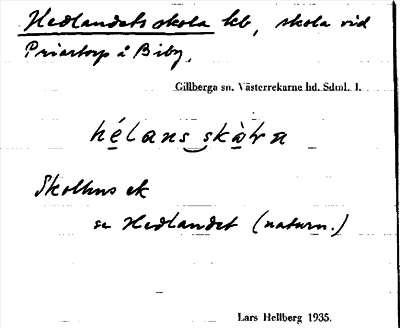 Hedlandets skola lcb, skola vid
Priartorp å Biby.
Gillberga sn. Västerrekarne hd. Sdml. 1.
Skolhus ek
se Hedlandet (naturn.)
Lars Hellberg 1935.